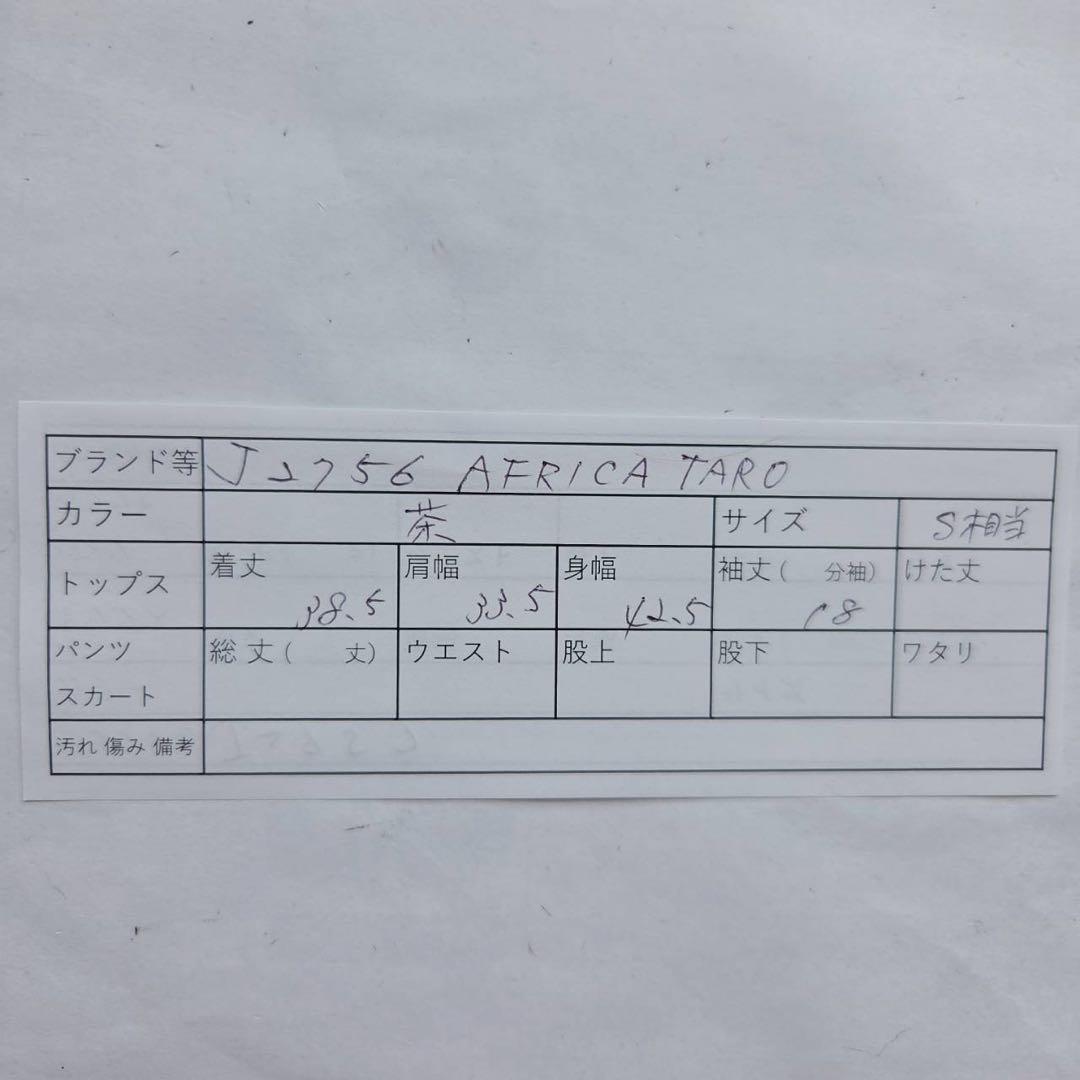 ブランド等 J2756 AFRICA TARO
カラー 茶 サイズ S相当
トップス 着丈 38.5 肩幅 33.5 身幅 42.5 袖丈( 分袖) 18 けた丈
パンツ スカート 総丈( 丈) ウエスト 股上 股下 ワタリ
汚れ 傷み 備考